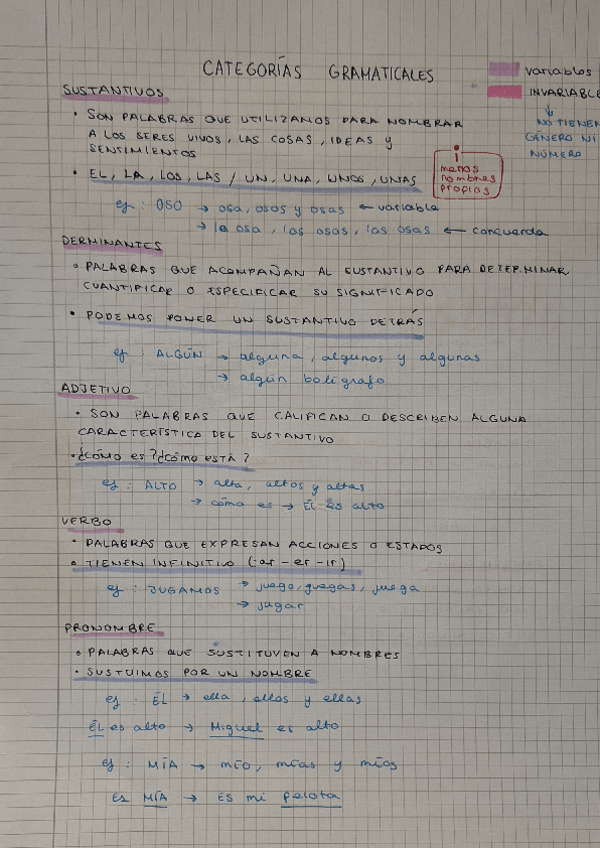 CATEGORÍAS GRAMATICALES
variables
INVARIABLE
NO TIENEN
GÉNERO NI
NÚMERO
SUSTANTIVOS
• SON PALABRAS QUE UTILIZAMOS PARA NOMBRAR
A LOS SERES VIVOS, LAS COSAS, IDEAS Y
SENTIMIENTOS
• EL, LA, LOS, LAS / UN, UNA, UNOS, UNAS
menos
nombres
propios
ej: OSO → osa, osos y osas ← variable
→ la osa, los osos, las osas ← concuerda
DERMINANTES
• PALABRAS QUE ACOMPAÑAN AL SUSTANTIVO PARA DETERMINAR,
CUANTIFICAR O ESPECIFICAR SU SIGNIFICADO
• PODEMOS PONER UN SUSTANTIVO DETRÁS
ej: ALGÚN → alguna, algunos y algunas
→ algún bolígrafo
ADJETIVO
• SON PALABRAS QUE CALIFICAN O DESCRIBEN ALGUNA
CARACTERÍSTICA DEL SUSTANTIVO
• ¿CÓMO ES? ¿CÓMO ESTÁ?
ej: ALTO → alta, altos y altas
→ cómo es → Él es alto
VERBO
• PALABRAS QUE EXPRESAN ACCIONES O ESTADOS
• TIENEN INFINITIVO (-ar -er -ir)
ej: JUGAMOS → juego, juegas, juega
→ jugar
PRONOMBRE
• PALABRAS QUE SUSTITUVEN A NOMBRES
• SUSTUIMOS POR UN NOMBRE
ej: ÉL → ella, ellos y ellas
ÉL es alto → Miguel es alto
ej: MÍA → mío, mías y míos
Es MÍA → ES mi pelota